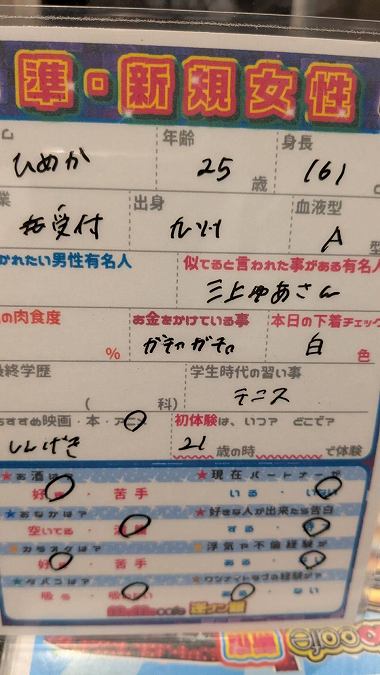 準・新規女性
ム 年齢 身長
ひめか 25 歳 161 c
業 出身 血液型
受付 九州 A 型
かれたい男性有名人 似てると言われた事がある有名人
三上ゆあさん
の肉食度 お金をかけている事 本日の下着チェック
% ガチャガチャ 白 色
最終学歴 学生時代の習い事
( 科) テニス
おすすめ映画・本・アニメ 初体験は、いつ? どこで?
しんげき 21 歳の時 で体験
★お酒は ★現在パートナーが
好き・苦手 いる・いない
★おなかは? ★好きな人が出来たら告白
空いてる・満腹 する・
★カラオケは? ★浮気や不倫経験が
好き・苦手 ある・ない
★タバコは? ★ワンナイトラブの経験が?
吸う・吸わない ある・ない
cafe
cafe